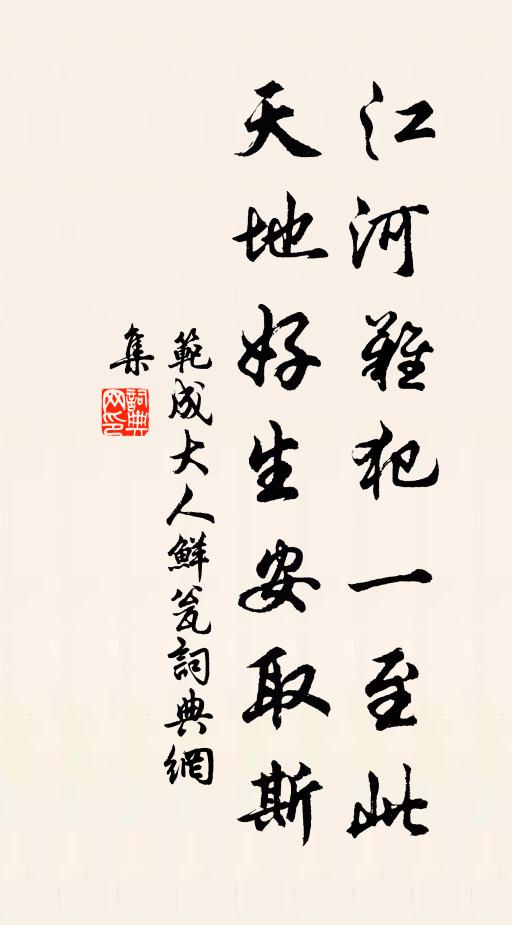 江河難犯一至此
天地好生安取斯
範成大人鮮瓮詞典網
集
詞典
网印